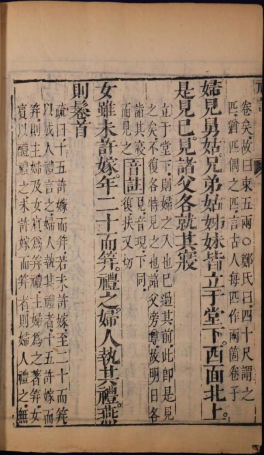 卷矣故曰束五兩○鄭氏曰四十尺謂之
匹猶匹偶之匹言古人每匹作兩箇卷子
婦見舅姑兄弟姑姊妹皆立于堂下西面北上
是見已見諸父各就其寢
立于堂下則婦之入也已過其前此即是見
之矣不復各特見之也諸父旁尊故明日各
詣其寢而見之 音註 見音現下同
復扶又切
女雖未許嫁年二十而笄禮之婦人執其禮燕
則鬈首
疏曰十五許嫁而笄若未許嫁至二十而笄
以成人禮言之婦人執其禮者十五許嫁而
笄則主婦及女賓爲笄禮主婦爲之著笄女
賓以醴禮之未許嫁而笄者則婦人禮之無